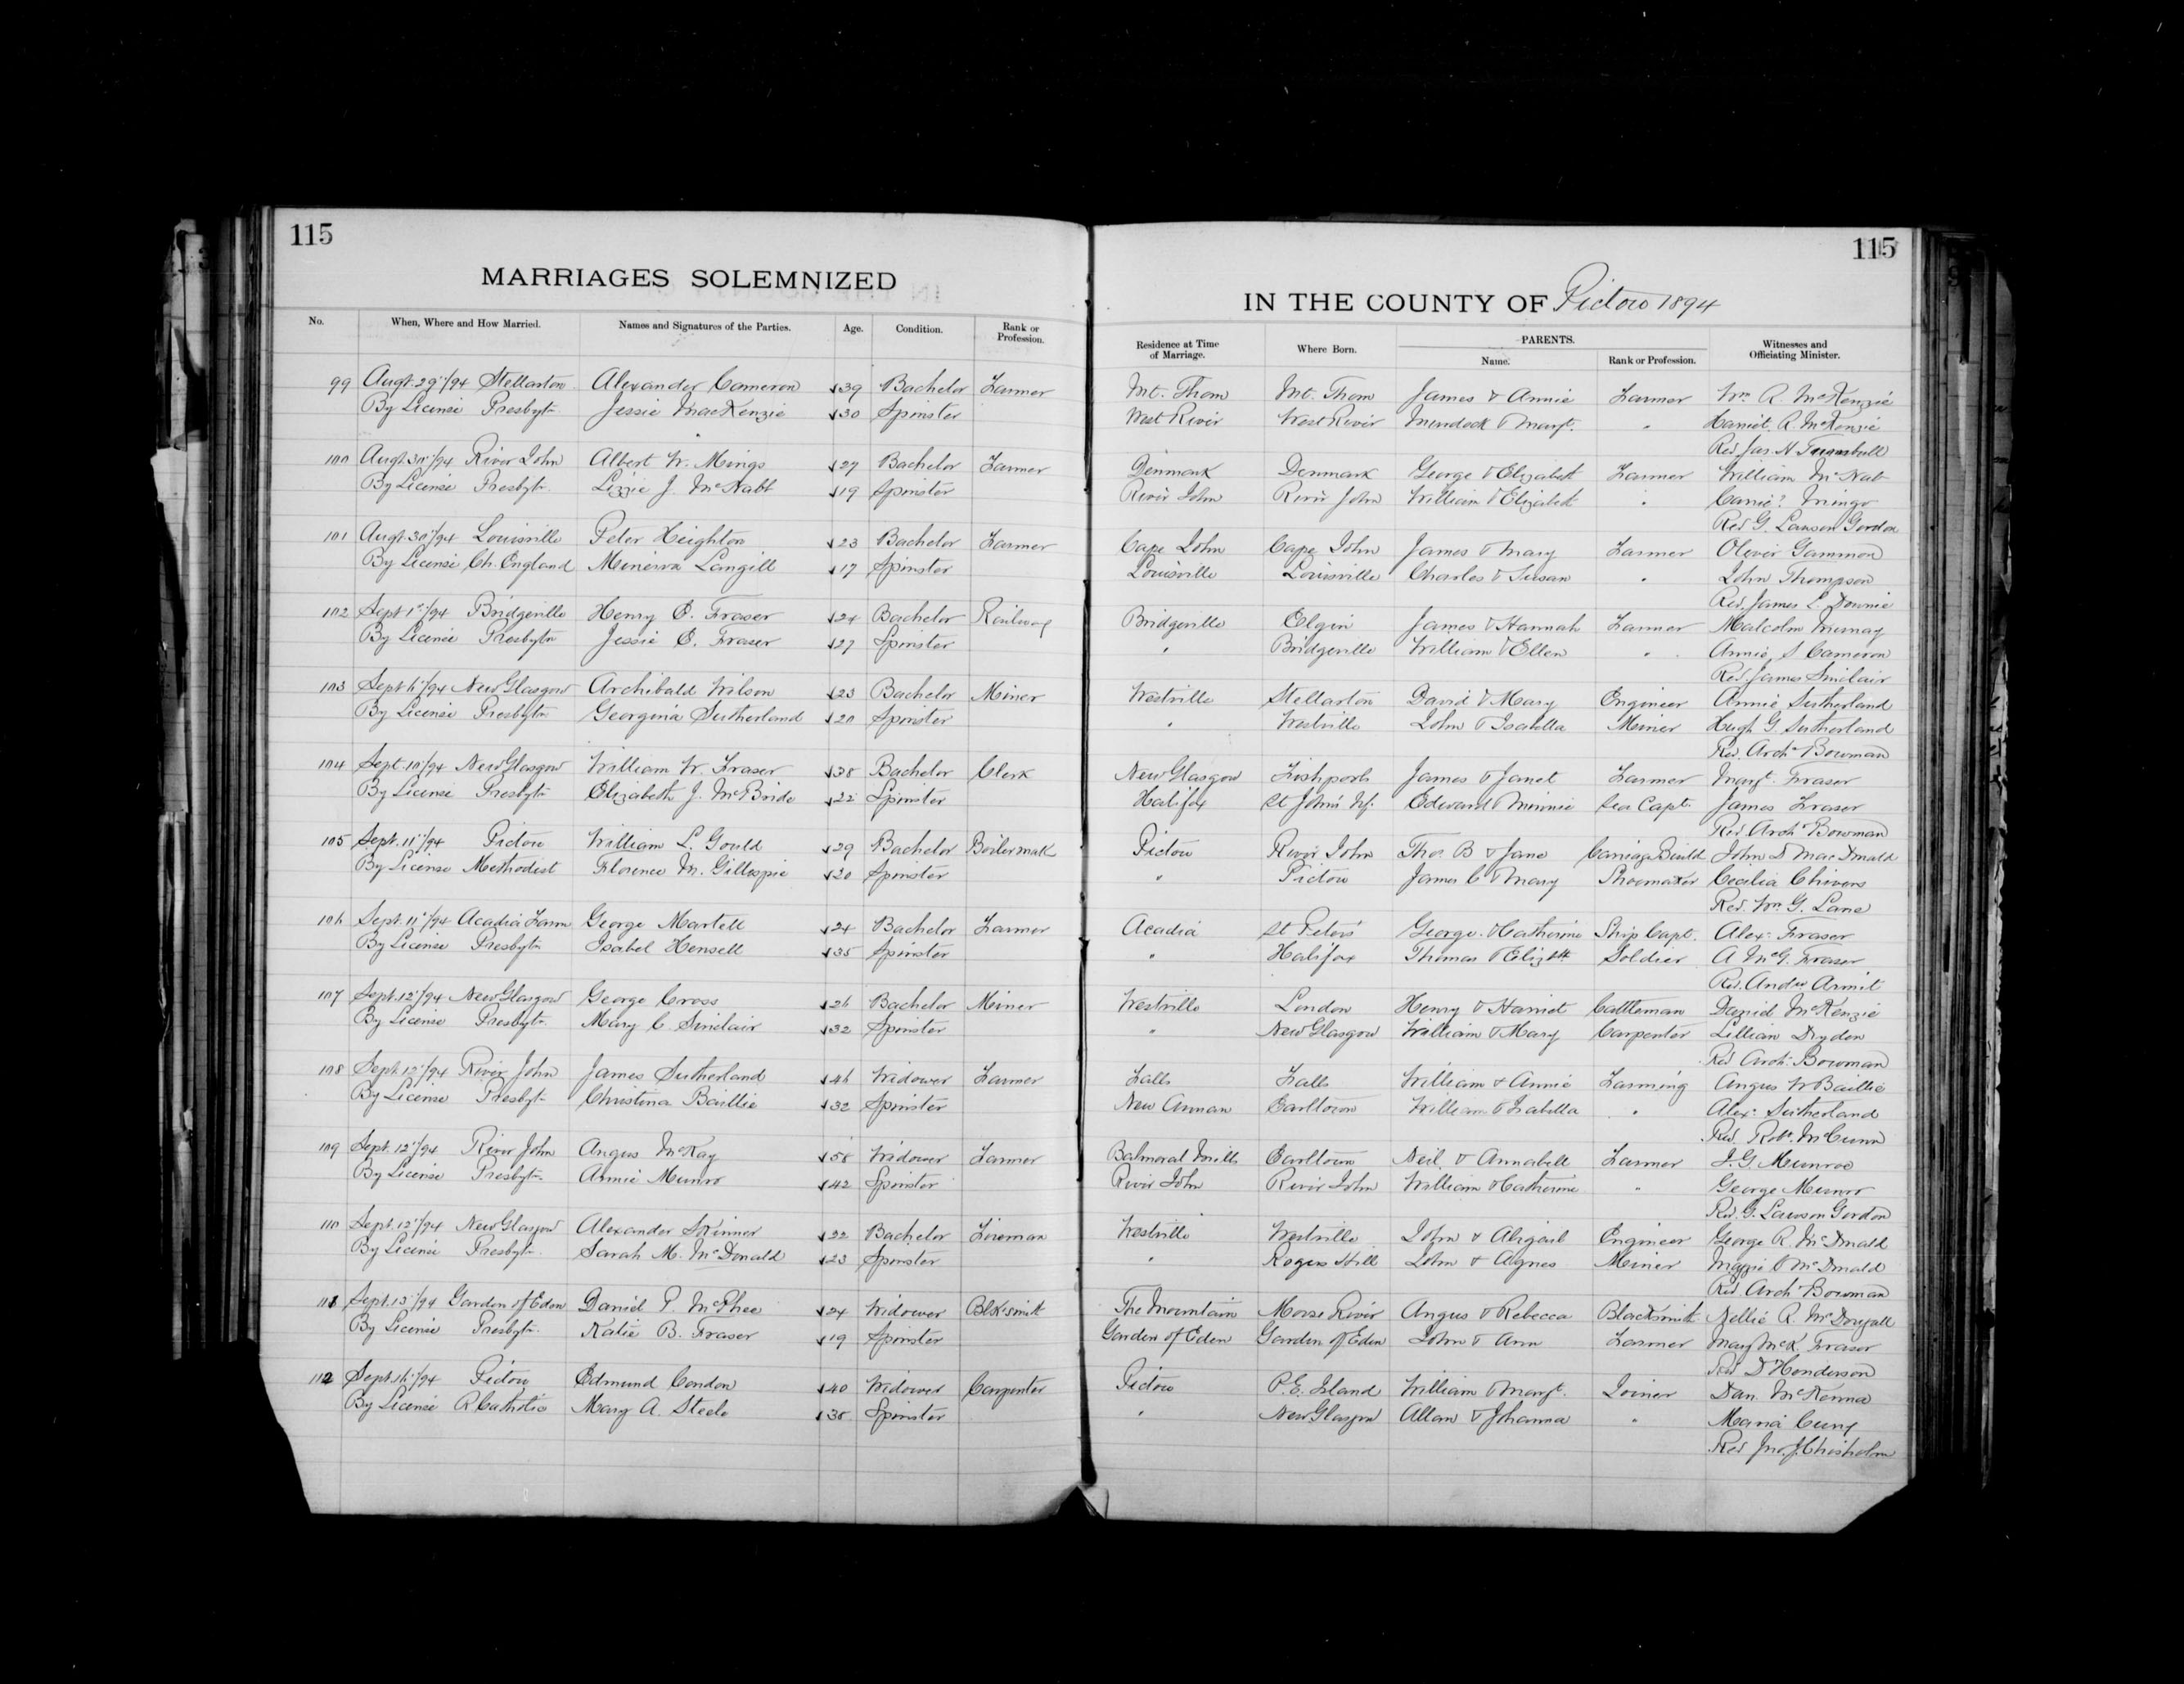 115
MARRIAGES SOLEMNIZED
No. When, Where and How Married. Names and Signatures of the Parties. Age. Condition. Rank or Profession.
99 Augt. 29/94 Stellarton Alexander Cameron 39 Bachelor Farmer
By License Presbytn Jessie MacKenzie 30 Spinster
100 Augt. 30/94 River John Albert W. Mingo 27 Bachelor Farmer
By License Presbytn Lizzie J. McNabt 19 Spinster
101 Augt. 30/94 Louisville Peter Heighton 23 Bachelor Farmer
By License Ch. England Minerva Langill 17 Spinster
102 Sept 1st/94 Bridgeville Henry O. Fraser 24 Bachelor Railway
By License Presbytn Jessie C. Fraser 27 Spinster
103 Sept 6/94 New Glasgow Archibald Wilson 23 Bachelor Miner
By License Presbytn Georgina Sutherland 20 Spinster
104 Sept. 10/94 New Glasgow William W. Fraser 38 Bachelor Clerk
By License Presbytn Elizabeth J. McBride 22 Spinster
105 Sept. 11/94 Pictou William L. Gould 29 Bachelor Boilermak
By License Methodist Florence M. Gillespie 20 Spinster
106 Sept. 11/94 Acadia Farm George Martell 24 Bachelor Farmer
By License Presbytn Isabel Hensell 35 Spinster
107 Sept. 12/94 New Glasgow George Cross 26 Bachelor Miner
By License Presbytn Mary C. Sinclair 32 Spinster
108 Sept 12/94 River John James Sutherland 46 Widower Farmer
By License Presbytn Christina Baillie 32 Spinster
109 Sept. 12/94 River John Angus McKay 58 Widower Farmer
By License Presbytn Annie Munro 42 Spinster
110 Sept. 12/94 New Glasgow Alexander Skinner 22 Bachelor Fireman
By License Presbytn Sarah M. McDonald 23 Spinster
111 Sept. 13/94 Garden of Eden Daniel P. McPhee 24 Widower Blksmith
By License Presbytn Katie B. Fraser 19 Spinster
112 Sept. 16/94 Pictou Edmund Condon 40 Widower Carpenter
By License R Catholic Mary A. Steele 38 Spinster
115
IN THE COUNTY OF Pictou 1894
Residence at Time of Marriage. Where Born. PARENTS. Name. Rank or Profession. Witnesses and Officiating Minister.
Mt. Thom Mt. Thom James & Annie Farmer Wm R. McKenzie
West River West River Murdock & Margt. " Harriet R. McKenzie
Rev Jas. H Turnbull
Denmark Denmark George & Elizabeth Farmer William McNab
River John River John William & Elizabeth " Carrie? Mingo
Rev G. Lawson Gordon
Cape John Cape John James & Mary Farmer Oliver Gammon
Louisville Louisville Charles & Susan " John Thompson
Rev. James L. Downie
Bridgeville Elgin James & Hannah Farmer Malcolm Murray
" Bridgeville William & Ellen " Annie S Cameron
Rev. James Sinclair
Westville Stellarton David & Mary Engineer Annie Sutherland
" Westville John & Isabella Miner Hugh G. Sutherland
Rev. Archd Bowman
New Glasgow James & Janet Farmer Margt. Fraser
Halifax St John's Nf. Edward & Minnie Sea Capt. James Fraser
Rev. Archd Bowman
Pictou River John Thos B & Jane Carriage Build John D MacDonald
" Pictou James C & Mary Shoemaker Cecilia Chivers
Rev. Wm G. Lane
Acadia St Peters George & Catherine Ship Capt. Alex. Fraser
" Halifax Thomas & Elizbth Soldier A McG. Fraser
Rev. Andw Armit
Westville London Henry & Harriet Cattleman Daniel McKenzie
" New Glasgow William & Mary Carpenter Lillian Dryden
Rev Archd. Bowman
Falls Falls William & Annie Farming Angus W Baillie
New Annan Earltown William & Isabella " Alex. Sutherland
Rev. Robt. McCunn
Balmoral Mills Earltown Neil & Annabell Farmer J. G. Munroe
River John River John William & Catherine " George Munro
Rev. G. Lawson Gordon
Westville Westville John & Abigail Engineer George R. McDonald
" Rogers Hill John & Agnes Miner Maggie C McDonald
Rev Archd Bowman
The Mountain Moose River Angus & Rebecca Blacksmith Nellie R. McDougall
Garden of Eden Garden of Eden John & Ann Farmer Mary McK. Fraser
Rev D Henderson
Pictou P. E. Island William & Margt. Joiner Dan. McKenna
" New Glasgow Allan & Johanna " Maria
Rev Jno. J. Chisholm